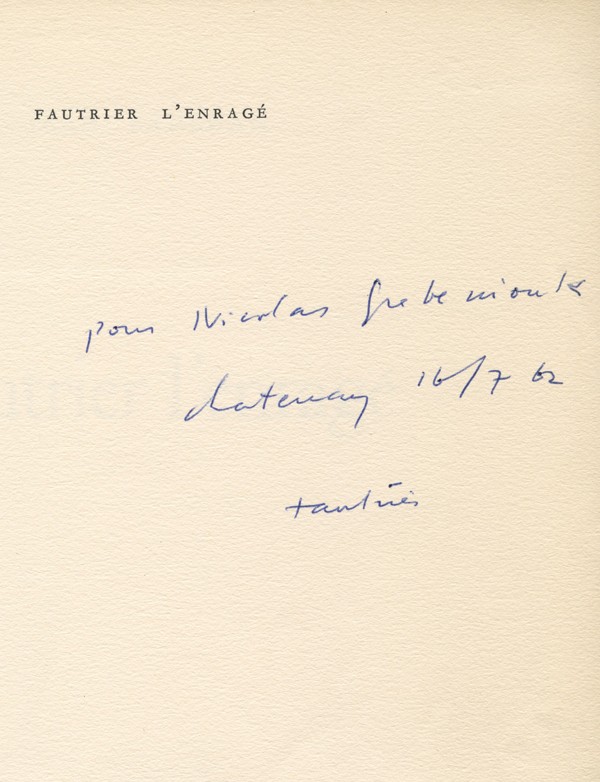 FAUTRIER L'ENRAGÉ
pour Nicolas Grebeniouk
chatenay 16/7 62
Fautrier